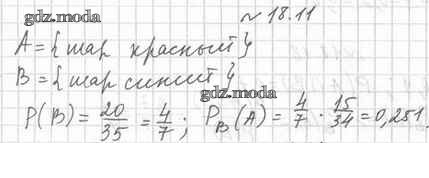 gdz.moda
№ 18.11
A = {шар красный}
B = {шар синий}
gdz.moda
P(B) = 20/35 = 4/7; P_B(A) = 4/7 · 15/34 = 0,251.
gdz.moda